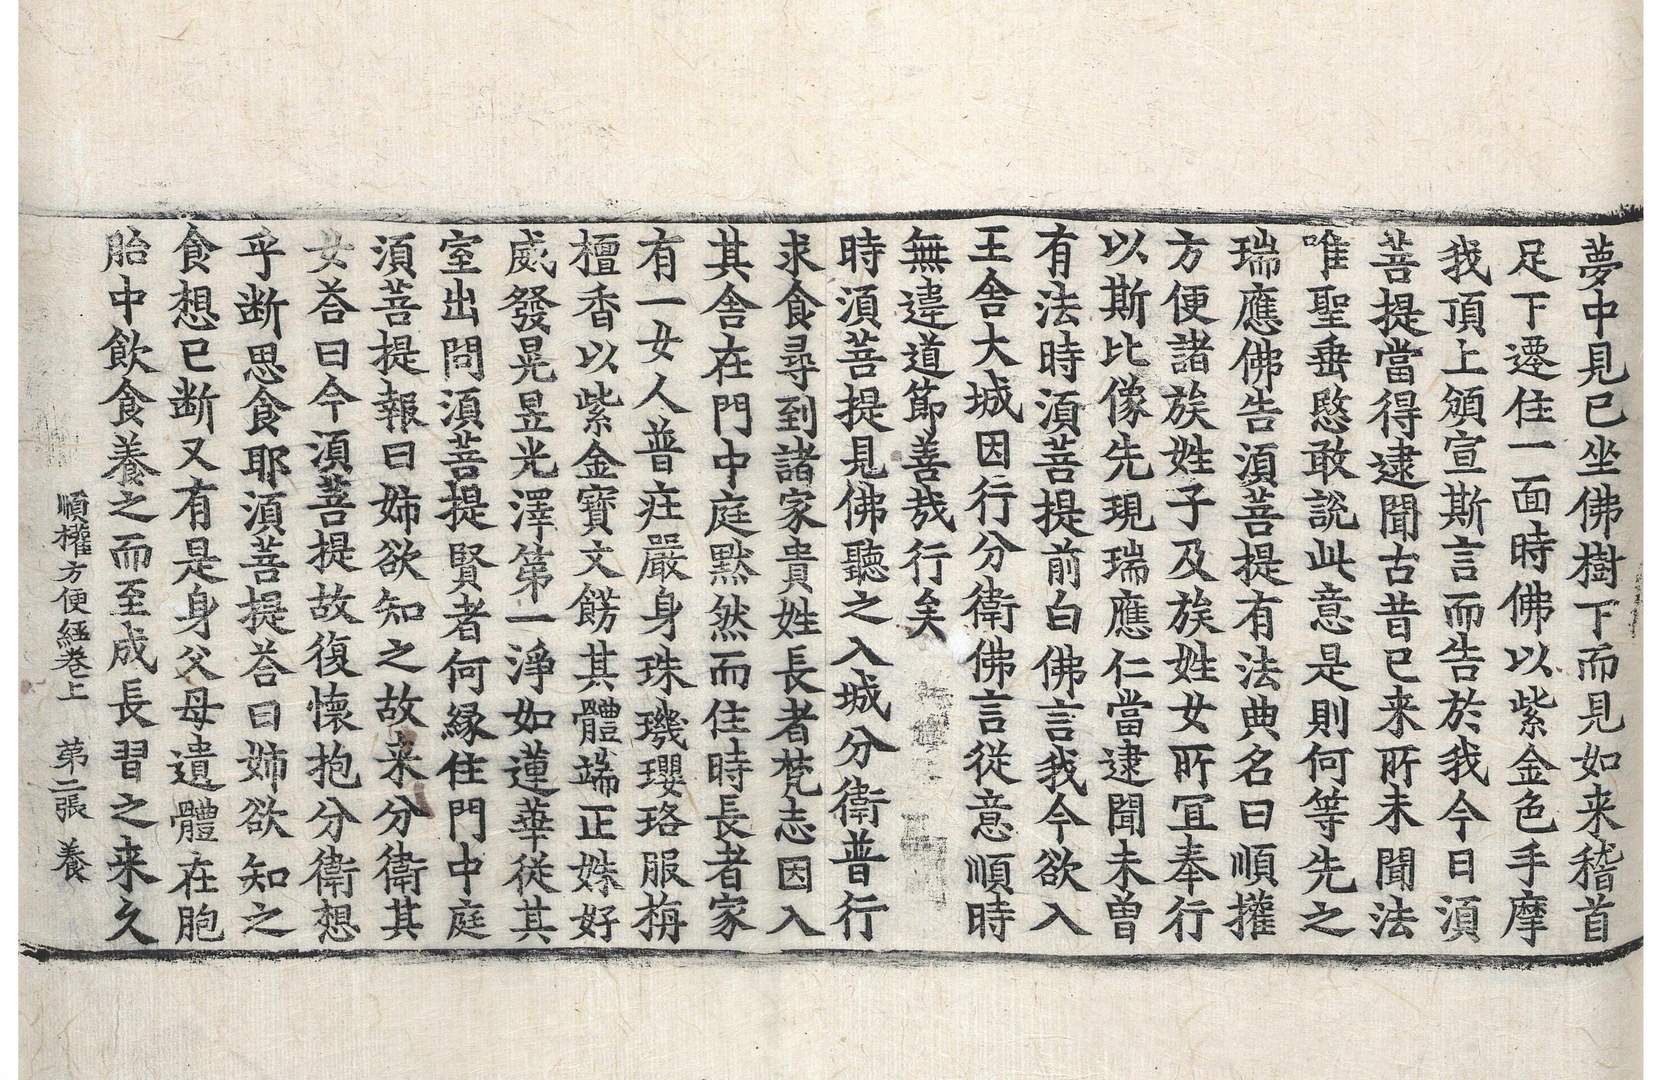 夢中見已坐佛樹下而見如来稽首
足下遷住一面時佛以紫金色手摩
我頂上頒宣斯言而告於我今日湏
菩提當得逮聞古昔已来所未聞法
唯聖垂愍敢說此意是則何等先之
瑞應佛告湏菩提有法典名曰順權
方便諸族姓子及族姓女所宜奉行
以斯比像先現瑞應仁當逮聞未曽
有法時湏菩提前白佛言我今欲入
王舍大城因行分衛佛言從意順時
無違道節善哉行矣
時湏菩提見佛聽之入城分衛普行
求食尋到諸家貴姓長者梵志因入
其舍在門中庭默然而住時長者家
有一女人普疘嚴身珠璣瓔珞服栴
檀香以紫金寶文餝其體端正姝好
威發晃昱光澤第一淨如蓮華從其
室出問湏菩提賢者何縁住門中庭
湏菩提報曰姉欲知之故来分衛其
女荅曰今湏菩提故復懷抱分衛想
乎断思食耶湏菩提荅曰姉欲知之
食想已断又有是身父母遺體在胞
胎中飲食養之而至成長習之来久
順權方便經卷上 第二張 養